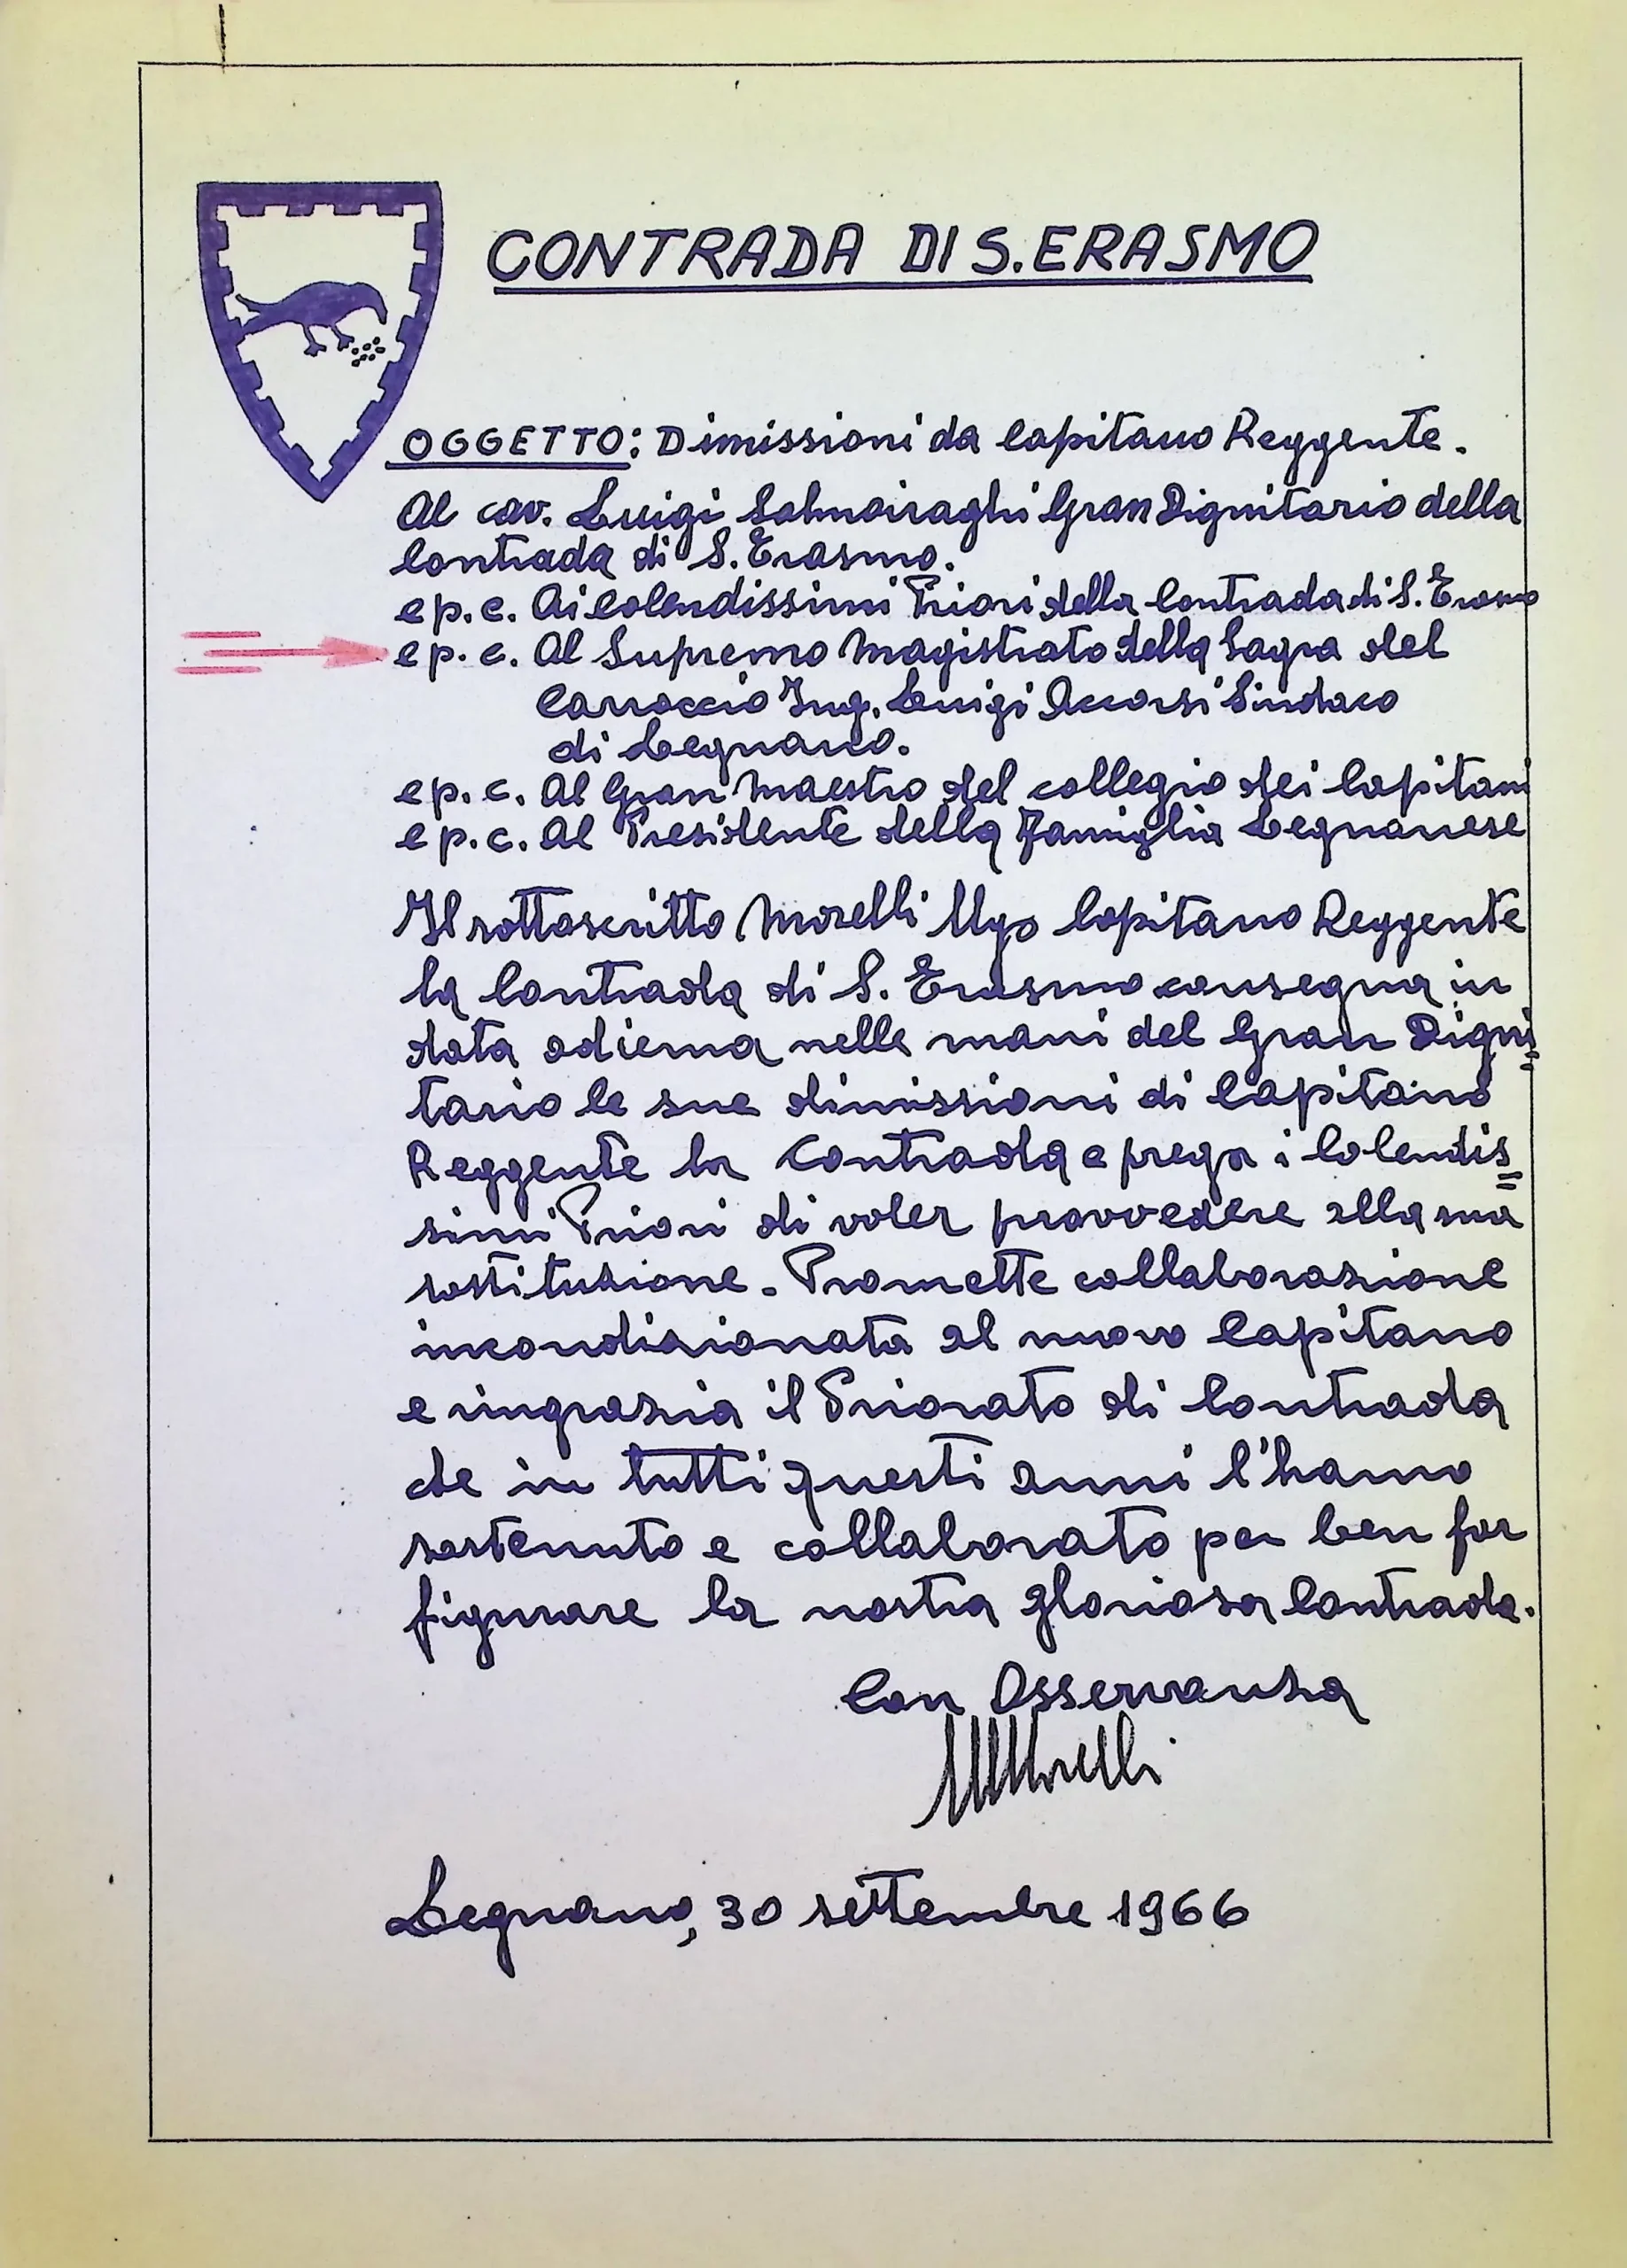 CONTRADA DI S. ERASMO
OGGETTO: Dimissioni da Capitano Reggente.
Al cav. Luigi Salmoiraghi Gran Dignitario della
Contrada di S. Erasmo.
e p. c. Ai Colendissimi Priori della Contrada di S. Erasmo
e p. c. Al Supremo Magistrato della Sagra del
Carroccio Ing. Luigi Accorsi Sindaco
di Legnano.
e p. c. Al Gran Maestro del collegio dei Capitani
e p. c. Al Presidente della Famiglia Legnanese
Il sottoscritto Morelli Ugo Capitano Reggente
la Contrada di S. Erasmo consegna in
data odierna nelle mani del Gran Digni=
tario le sue dimissioni di Capitano
Reggente la Contrada e prega i Colendis=
simi Priori di voler provvedere alla sua
sostituzione. Promette collaborazione
incondizionata al nuovo Capitano
e ringrazia il Priorato di Contrada
che in tutti questi anni l'hanno
sostenuto e collaborato per ben far
figurare la nostra gloriosa Contrada.
Con Osservanza
UMorelli
Legnano, 30 settembre 1966